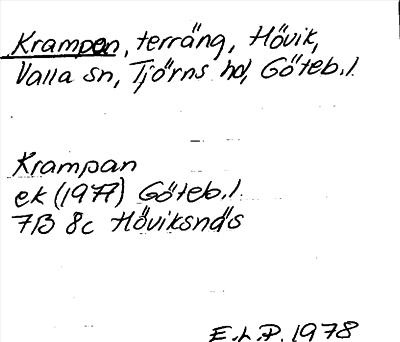 Krampen, terräng, Hövik,
Valla sn, Tjörns hd, Göteb.l.
Krampan
ek (1977) Göteb.l.
7B 8c Höviksnäs
E.L.P. 1978